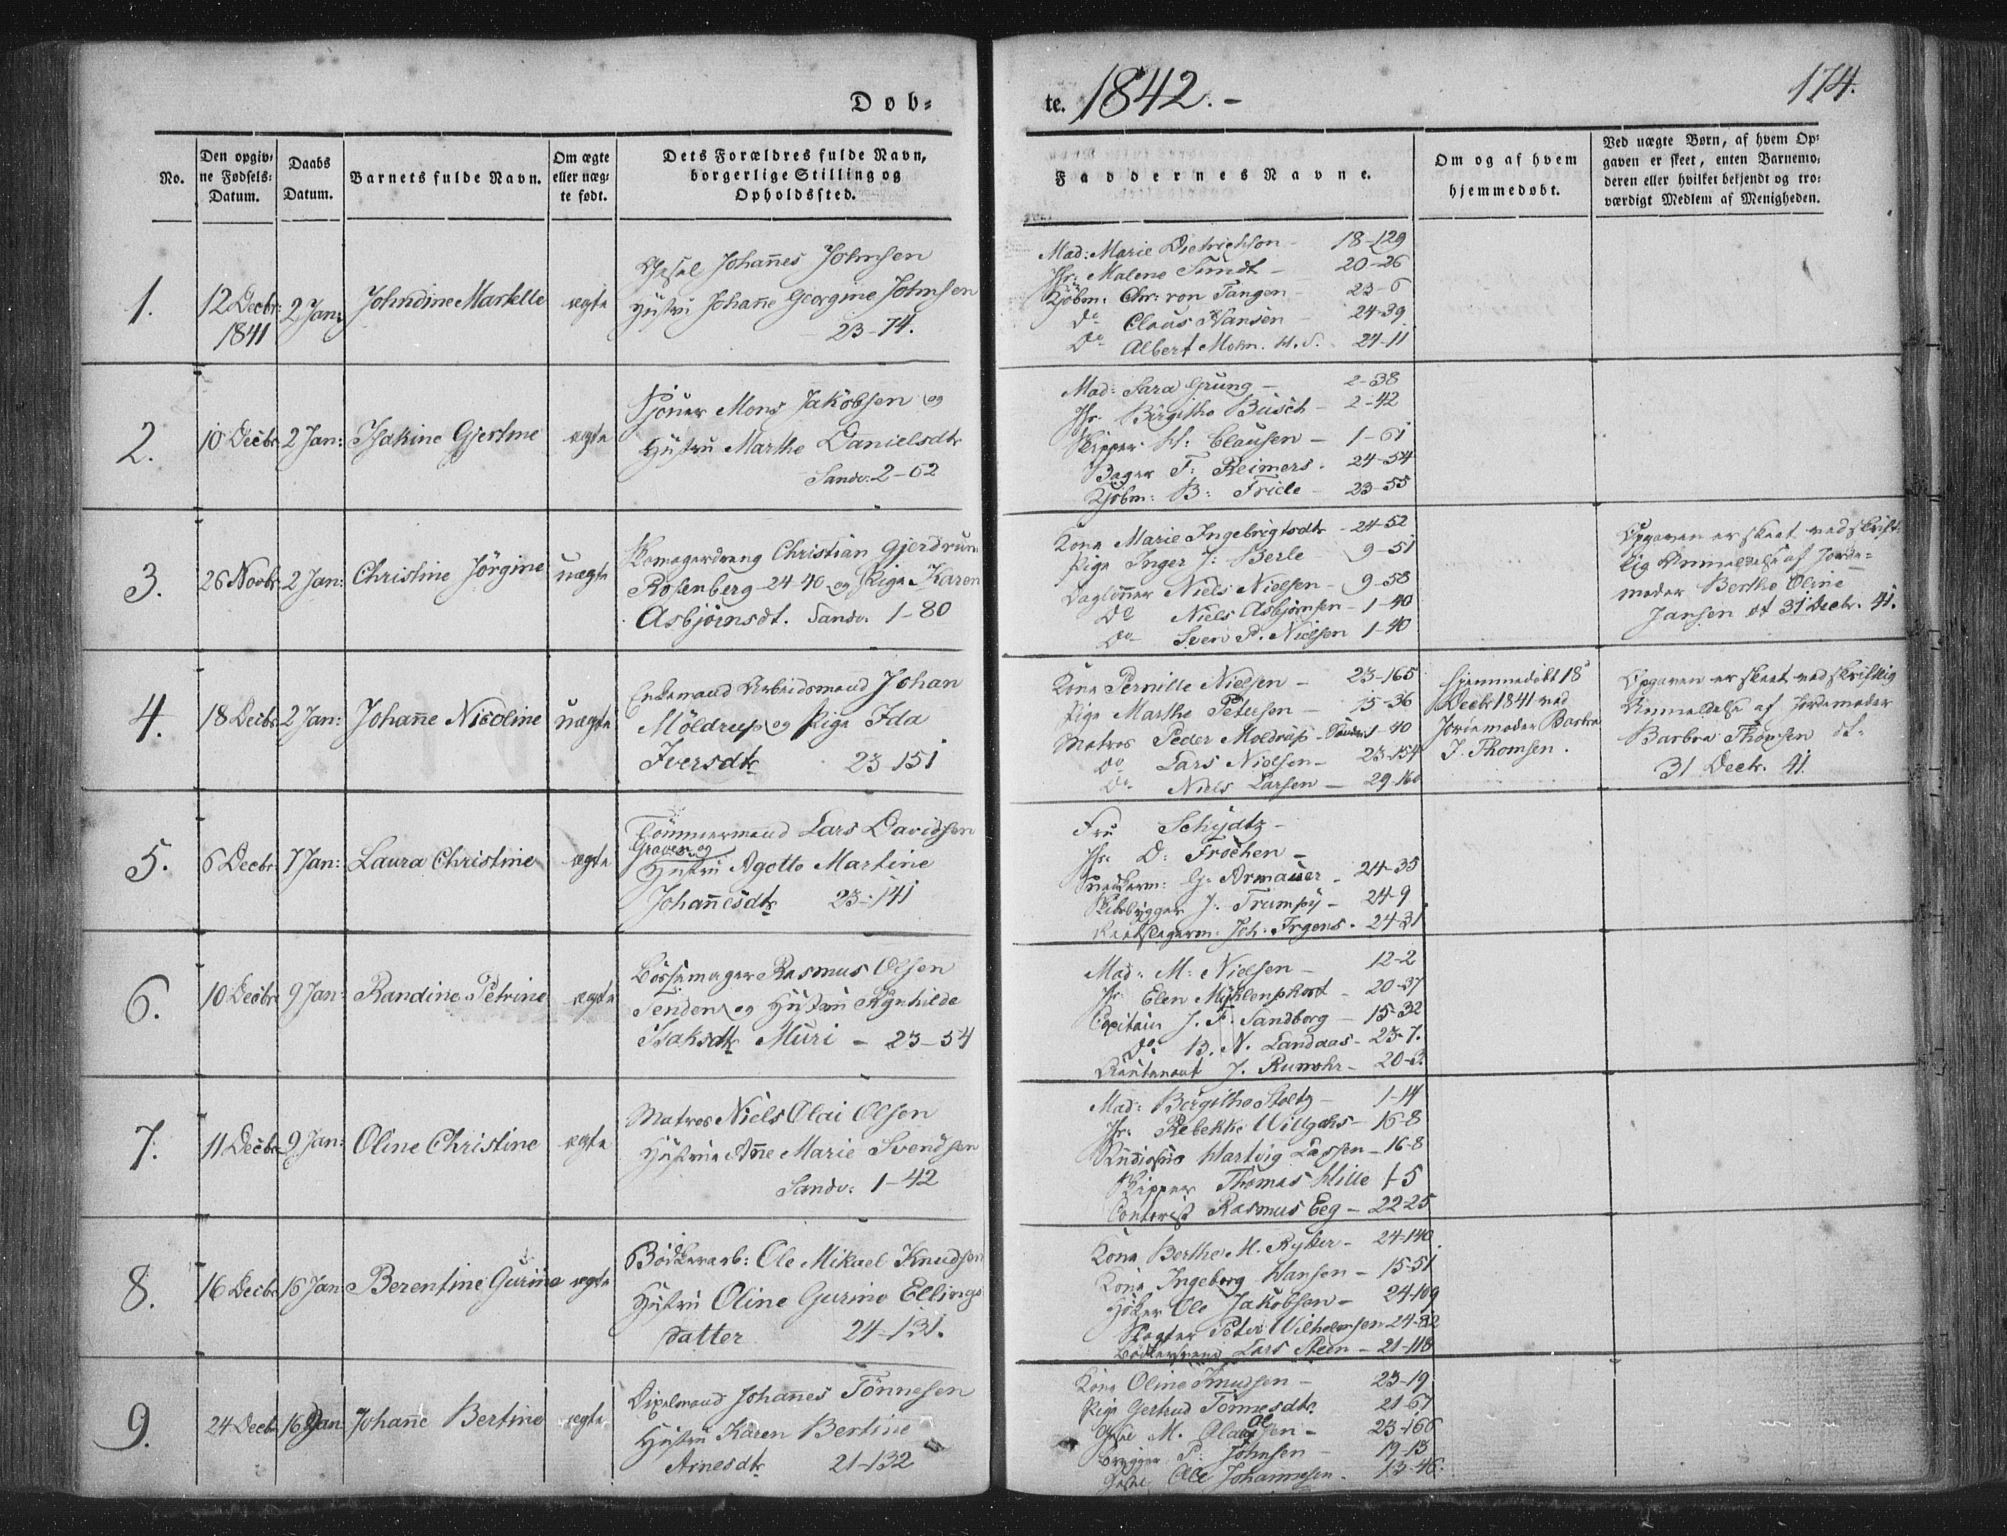 Døb-
te. 1842.-
174.
No.
Den opgiv-
ne Fødsels-
Datum.
Daabs
Datum.
Barnets fulde Navn.
Om ægte
eller uæg-
te født.
Dets Forældres fulde Navn,
borgerlige Stilling og
Opholdssted.
Faddernes Navne.
Om og af hvem
hjemmedøbt.
Ved uægte Børn, af hvem Op-
gaven er skeet, enten Barnemo-
deren eller hvilket bekjendt og tro-
værdigt Medlem af Menigheden.
1.
12 Decbr
1841
2 Jan:
Johndine Martelle
ægte
Johannes Johnsen
Hustru Johanne Georgine Johnsen
23-74.
Mad: Marie Dietrichson - 18-129
Jfr: Malene Sundt - 20-26
Kjøbm: Chr: von Tangen - 23-6
do Claus Hansen - 24-39
Do Albert Mohn. H. S. 24-11
2.
10 Decbr
2 Jan:
Isakine Gjertine
ægte
Mons Jakobsen og
Hustru Marthe Danielsdtr
Sandv: 2-62
Mad: Sara Grung - 2-38
Jfr. Birgithe Büsch - 2-42
Skipper H: Clausen - 1-61
Bager F: Reimers. 24-54
Kjøbm: B: Friele - 23-55
3.
26 Novbr
2 Jan:
Christine Jörgine
uægte
Christian Gjerdrum
Rosenberg 24-40 og Pige Karen
Asbjörnsdt. Sandv. 1-80
Kone Marie Ingebrigtsdtr - 24-52
Pige Inger J: Berle 9-51
Daglönner Niels Nielsen - 9-58
Do Niels Asbjørnsen - 1-40
Do Sven P. Nielsen 1-40
Opgaven er skeet ved skrift-
lig Anmeldelse af Jorde-
moder Berthe Oline
Jansen dt 31 Decbr. 41.
4.
18 Decbr
2 Jan:
Johanne Nicoline
uægte
Enkemand Arbeidsmand Johan
Möldrup og Pige Ida
Iversdtr 23-151
Kone Pernille Nielsen - 23-165
Pige Marthe Petersen - 15-36
Matros Peder Moldrup - Sandv 1-40
Do Lars Nielsen - 23-154
Do Niels Larsen - 29-160
Hjemmedöbt 18
Decbr 1841 ved
Jordemoder Barbra
J. Thomsen.
Opgaven er skeet ved skriftlig
Anmeldelse af Jordemoder
Barbra Thomsen dt-
31 Decbr. 41.
5.
6 Decbr
7 Jan:
Laura Christine
ægte
Tömmermand Lars Davidsen
Graven og
Hustru Agotte Martine
Johannesdtr 23-141
Fru Schydtz -
Jfr. D: Frochen -
Snedkerm: G: Armauer - 24-35
Skibsbygger J. Trumpy - 24-9
Joh: Irgens. 24-31
6.
10 Decbr
9 Jan:
Randine Petrine
ægte
Bössemager Rasmus Olsen
Senden og Hustru Rynhilde
Isaksdtr Muri - 23-54
Mad: M: Nielsen - 12-2
Jfr: Elen Myhlenphort - 20-37
Capitain J. F. Sandberg - 15-32
do B. N. Landaas - 23-7.
Lieutenant J. Rumohr - 20-3.
7.
11 Decbr
9 Jan:
Oline Christine
ægte
Matros Niels Olai Olsen
Hustrue Anne Marie Svendsen
Sandv: 1-42
Mad: Birgithe Stoltz - 1-14
Jfr. Rebekke Willgohs - 16-8
Studiosus Hartvig Lassen - 16-8
Skipper Thomas Hille 1-5
Contorist Rasmus Eeg - 22-25
8.
16 Decbr
16 Jan:
Berentine Gurine
ægte
Bödkerarb: Ole Mikael Knudsen
Hustru Oline Gurine Ellings
datter 24-131.
Kone Berthe M. Rykter - 24-140
Kone Ingeborg Hansen - 15-51
Höker Ole Jakobsen - 24-109
Slagter Peter Wilhelmsen 24-82
Bödkersvend Lars Steen - 21-118
9.
24 Decbr
16 Jan:
Johanne Bertine
ægte
Johannes Tönnesen
Hustru Karen Bertine
Arnesdtr 21-132
Kone Oline Knudsen - 23-19
Pige Gertrud Tönnesdtr 21-67
M. Olsen - 23-166
P: Johnsen - 19-13
Ole Johannesen. 13-46.